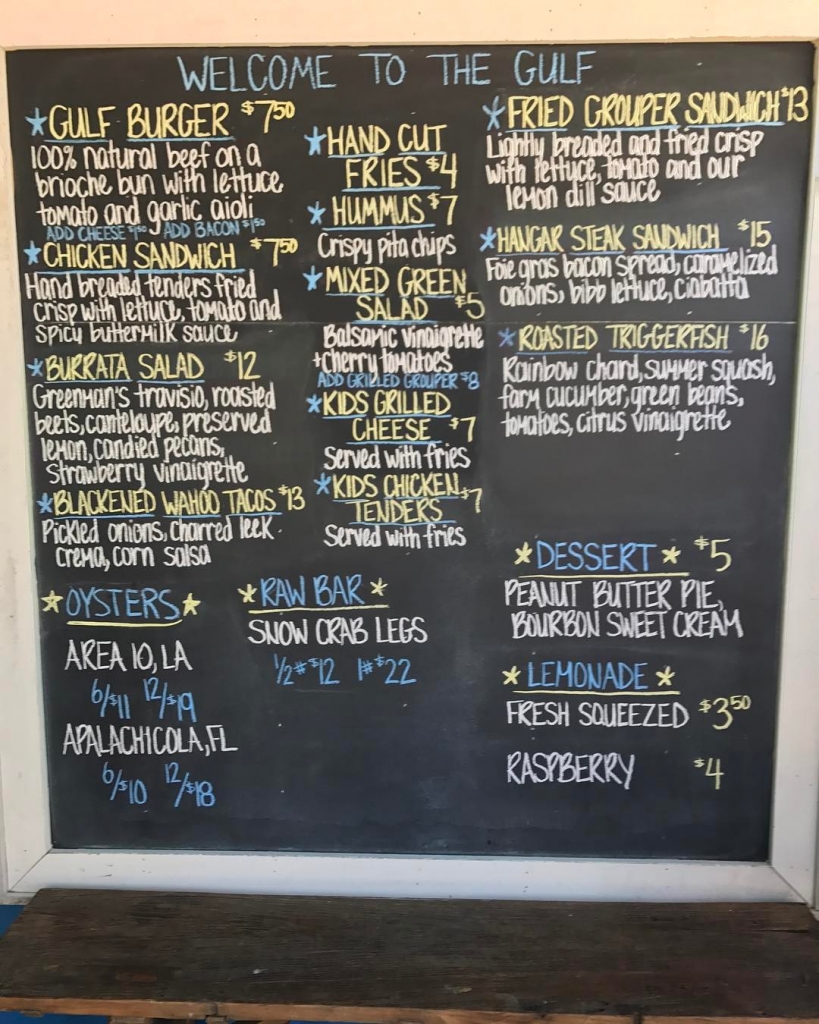 WELCOME TO THE GULF
*GULF BURGER $7.50
100% natural beef on a
brioche bun with lettuce
tomato and garlic aioli
ADD CHEESE $1.50 ADD BACON $1.50
*CHICKEN SANDWICH $7.50
Hand breaded tenders fried
crisp with lettuce, tomato and
spicy buttermilk sauce
*BURRATA SALAD $12
Greenman's travisio, roasted
beets, canteloupe, preserved
lemon, candied pecans,
strawberry vinaigrette
*BLACKENED WAHOO TACOS $13
Pickled onions, charred leek
crema, corn salsa
*HAND CUT
FRIES $4
*HUMMUS $7
Crispy pita chips
*MIXED GREEN
SALAD $5
Balsamic vinaigrette
+cherry tomatoes
ADD GRILLED GROUPER $8
*KIDS GRILLED
CHEESE $7
Served with fries
*KIDS CHICKEN
TENDERS $7
Served with fries
*FRIED GROUPER SANDWICH $13
Lightly breaded and fried crisp
with lettuce, tomato and our
lemon dill sauce
*HANGAR STEAK SANDWICH $15
Foie gras bacon spread, caramelized
onions, bibb lettuce, ciabatta
*ROASTED TRIGGERFISH $16
Rainbow chard, summer squash,
farm cucumber, green beans,
tomatoes, citrus vinaigrette
*OYSTERS*
AREA 10, LA
6/$11 12/$19
APALACHICOLA, FL
6/$10 12/$18
*RAW BAR*
SNOW CRAB LEGS
1/2# $12 1# $22
*DESSERT* $5
PEANUT BUTTER PIE,
BOURBON SWEET CREAM
*LEMONADE*
FRESH SQUEEZED $3.50
RASPBERRY $4